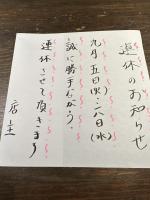 連休のお知らせ
九月五日(火)〜八日(水)
誠に勝手ながら、
連休させて頂きます
店主